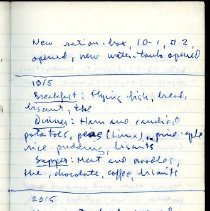 New ration-box, 10-1, #2,
opened, new water-tank opened
19/5
Breakfast: Flying fish, bread,
biscuit, tea
Dinner: Ham and candied
potatoes, peas (Lima), pine-apple
rice pudding, biscuits
Supper: Meat and noodles,
tea, chocolate, coffee, biscuits
20/5